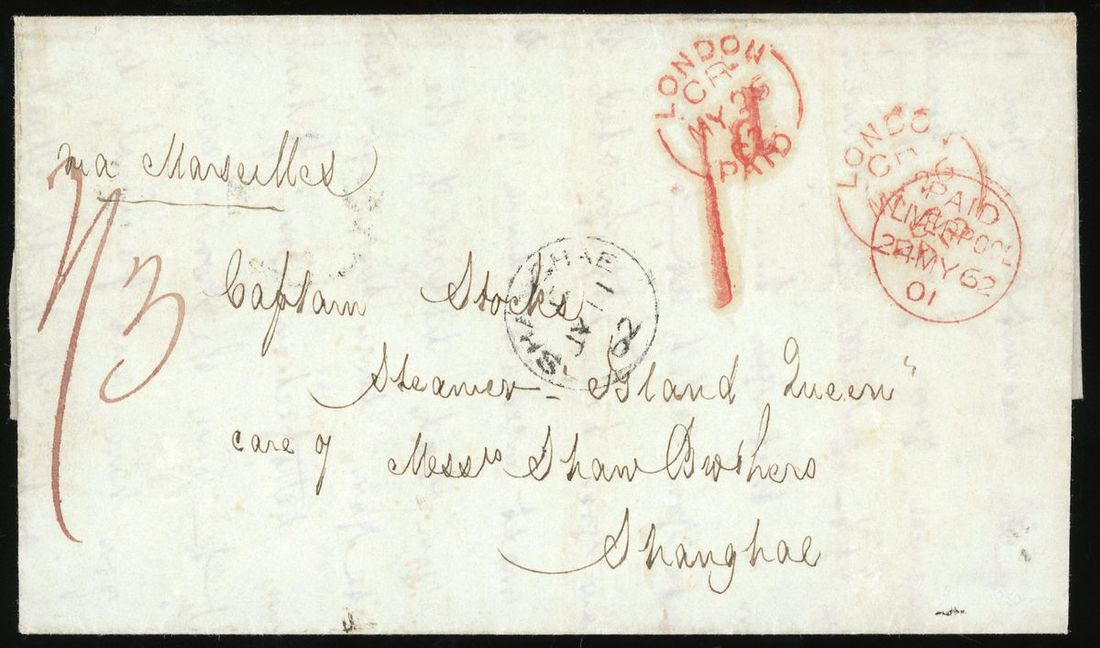 via Marseilles
1/3
LONDON
CR
MY 2
PAID
1d
LONDON
CR
PAID
LIVERPOOL
24 MY 62
01
SHANGHAE
62
Captain Stocks
Steamer - Island Queen"
care of Messrs Shaw Brothers
Shanghae